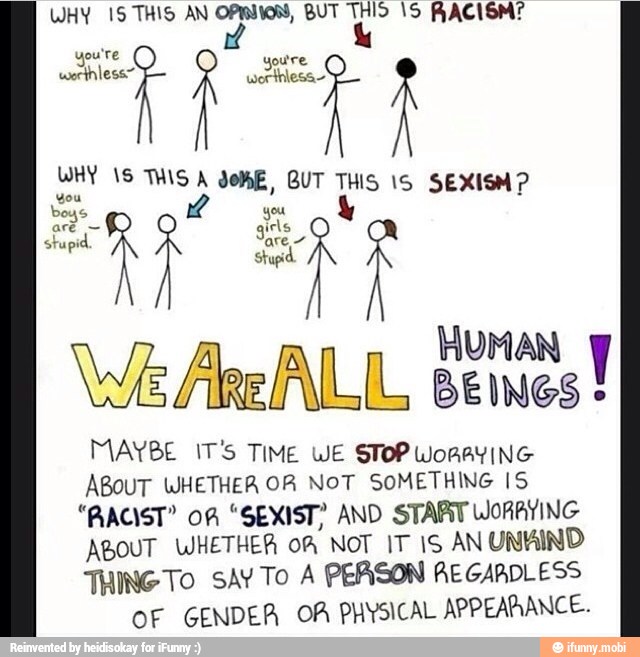 WHY IS THIS AN OPINION, BUT THIS IS RACISM?
you're
worthless
you're
worthless
WHY IS THIS A JOKE, BUT THIS IS SEXISM?
you
boys
are
stupid.
you
girls
are
stupid.
WE ARE ALL HUMAN BEINGS!
MAYBE IT'S TIME WE STOP WORRYING
ABOUT WHETHER OR NOT SOMETHING IS
"RACIST" OR "SEXIST", AND START WORRYING
ABOUT WHETHER OR NOT IT IS AN UNKIND
THING TO SAY TO A PERSON REGARDLESS
OF GENDER OR PHYSICAL APPEARANCE.
Reinvented by heidisokay for iFunny :)
ifunny.mobi